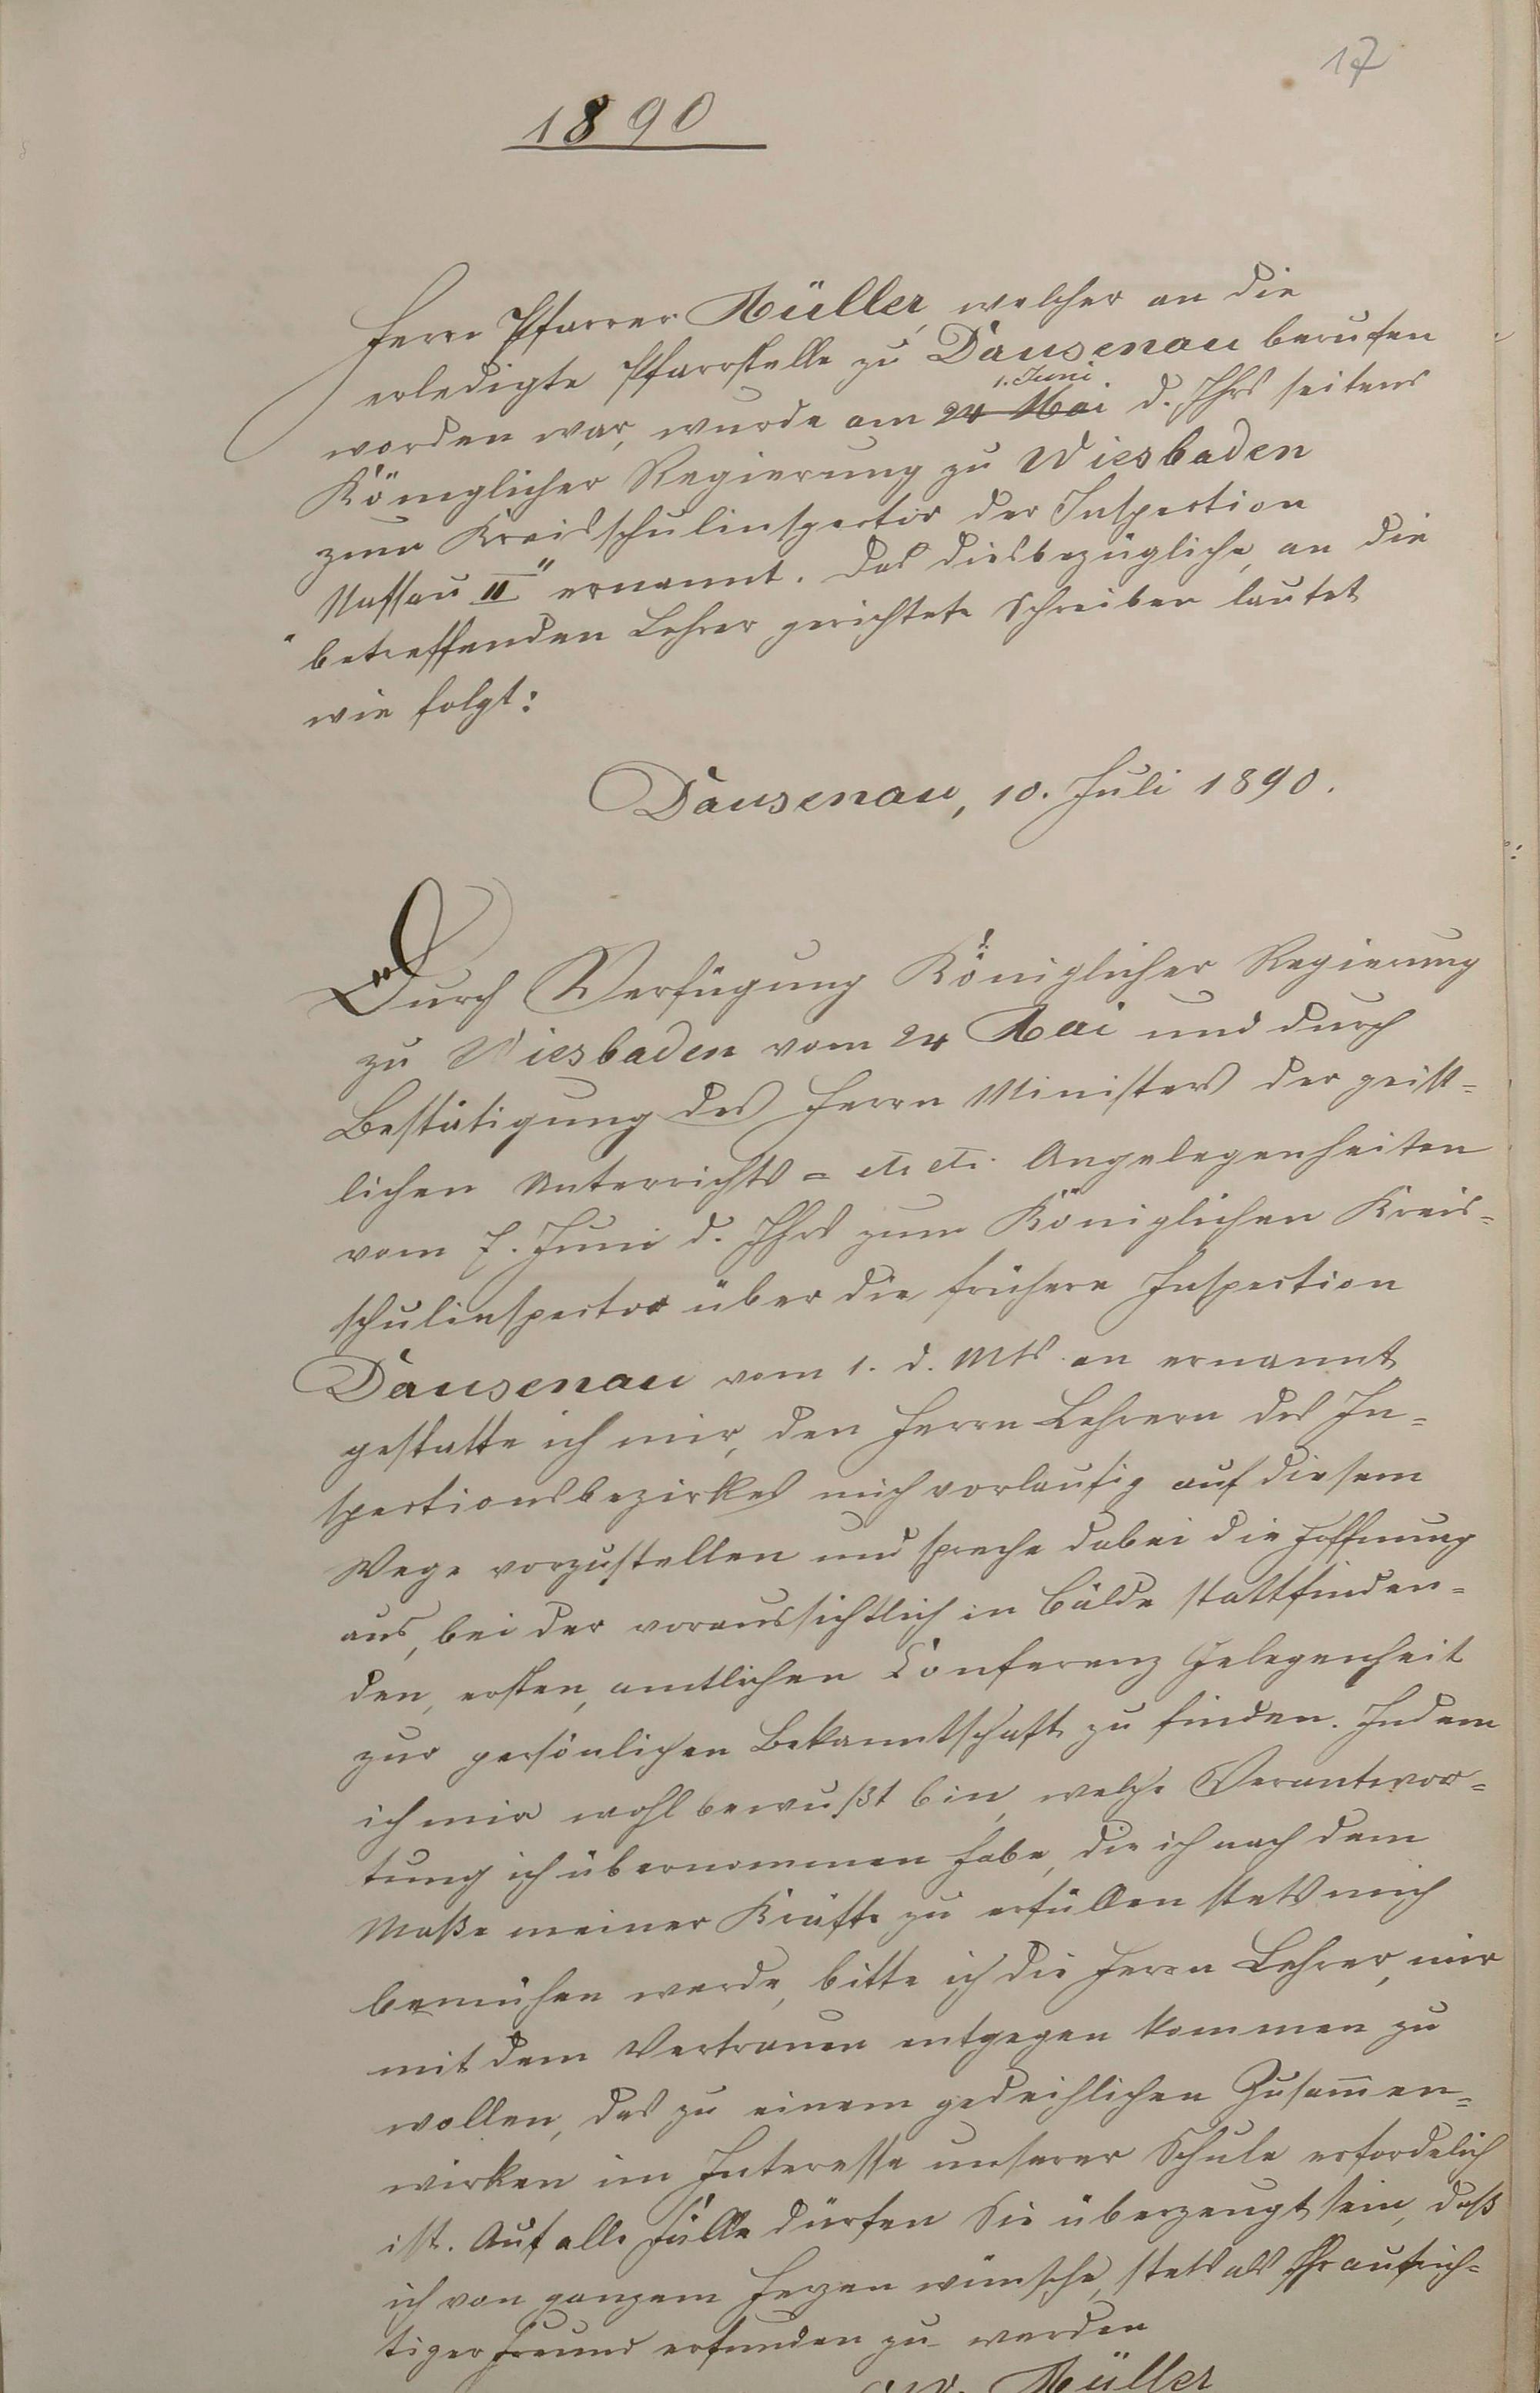 17
1890
Herr Pfarrer Müller, welcher an die
erledigte Pfarrstelle zu Dausenau berufen
1. Juni
worden war, wurde am 24 Mai d. Jhrs seitens
Königlicher Regierung zu Wiesbaden
zum Kreisschulinspector der Inspection
"Nassau II" ernannt. Das diesbezügliche, an die
betreffenden Lehrer gerichtete Schreiben lautet
wie folgt:
Dausenau, 10. Juli 1890.
Durch Verfügung Königlicher Regierung
zu Wiesbaden vom 24 Mai und durch
Bestätigung des Herrn Ministers der geist-
lichen Unterrichts- etc etc. Angelegenheiten
vom 7. Juni d. Jhrs zum Königlichen Kreis-
schulinspector über die frühere Inspection
Dausenau vom 1. d. Mts an ernannt,
gestatte ich mir, den Herrn Lehrern des In-
spectionsbezirkes mich vorlaufig auf diesem
Wege vorzustellen und spreche dabei die Hoffnung
aus, bei der voraussichtlich in Bälde stattfinden-
den, ersten, amtlichen Conferenz Gelegenheit
zur persönlichen Bekanntschaft zu finden. Indem
ich mir wohl bewußt bin, welche Verantwor-
tung ich übernommen habe, die ich nach dem
Maße meiner Kräfte zu erfüllen stets mich
bemühen werde, bitte ich die Herrn Lehrer, mir
mit dem Vertrauen entgegen kommen zu
wollen, das zu einem gedeihlichen Zusammen-
wirken im Interesse unserer Schule erfordelich
ist. Auf alle Fälle dürfen Sie überzeugt sein, daß
ich von ganzem Herzen wünsche, stets als Ihr aufrich-
tiger Freund erfunden zu werden
Müller